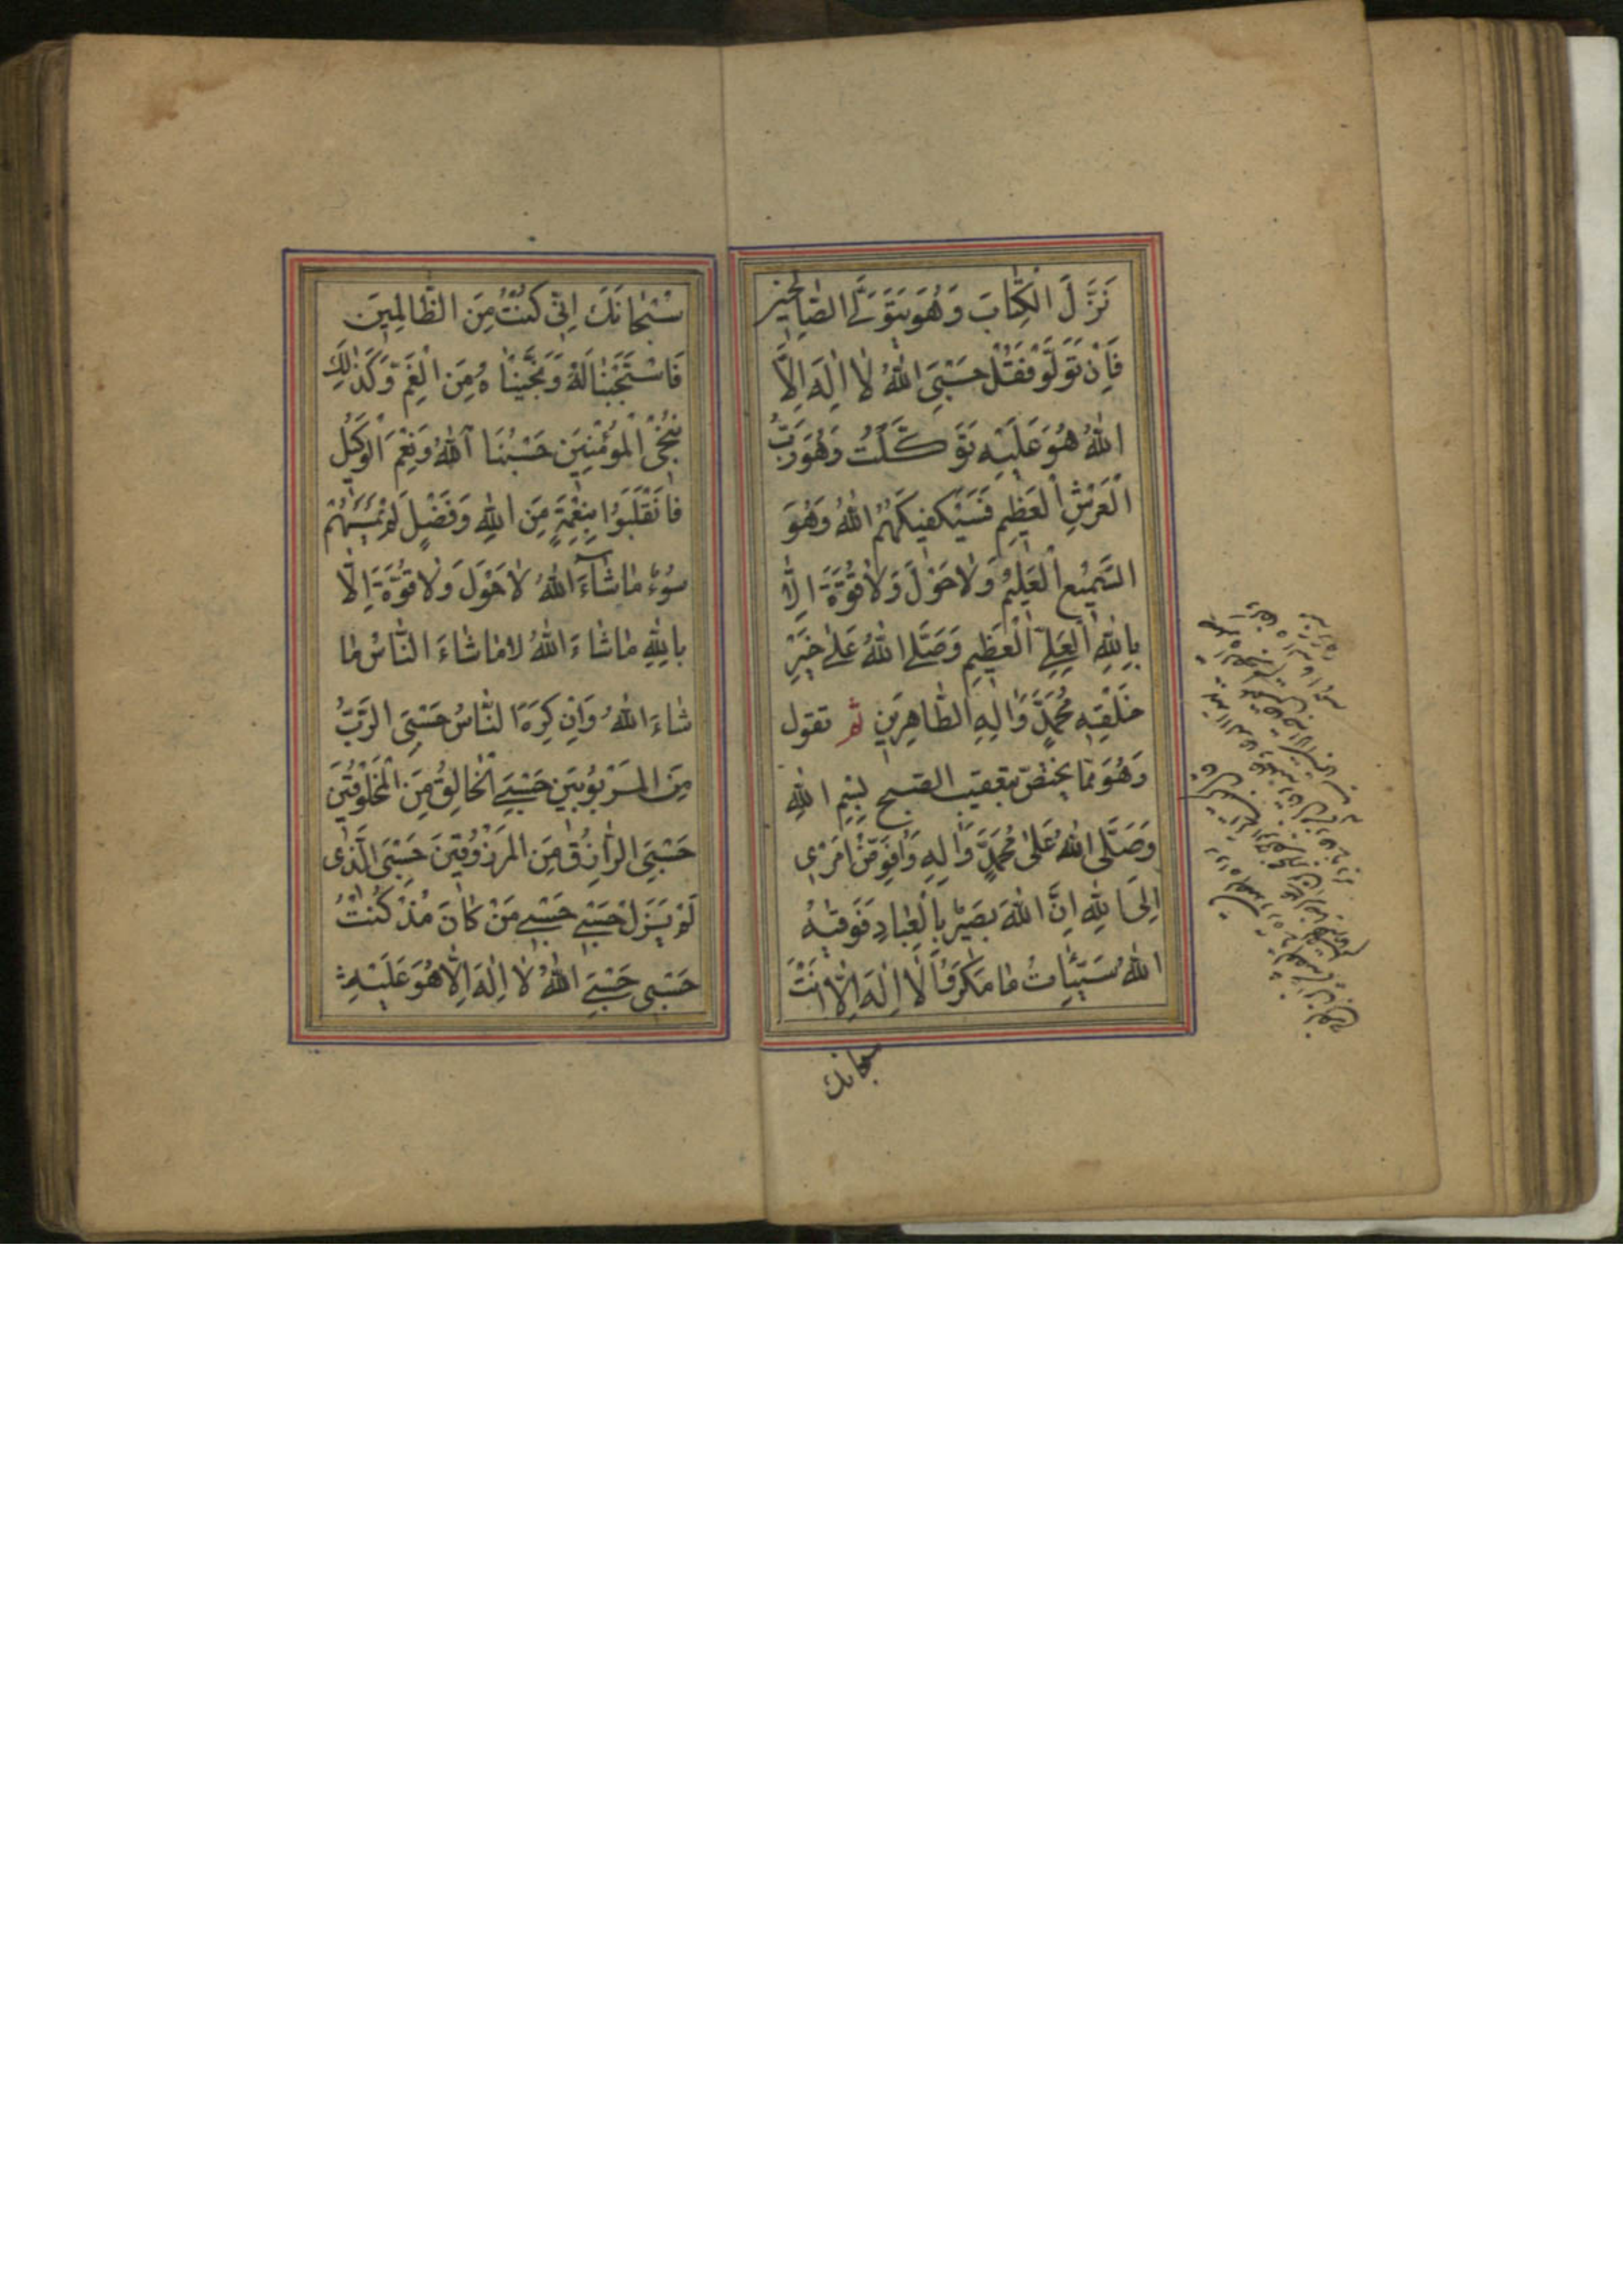 نَزَّلَ الْكِتَابَ وَهُوَ يَتَوَلَّى الصَّالِحِينَ
فَإِنْ تَوَلَّوْ فَقُلْ حَسْبِىَ اللهُ لَا اِلٰهَ اِلَّا
اللهُ هُوَ عَلَيْهِ تَوَكَّلْتُ وَهُوَ رَبُّ
الْعَرْشِ الْعَظِيمِ فَسَيَكْفِيكَهُمُ اللهُ وَهُوَ
السَّمِيعُ الْعَلِيمُ وَلَا حَوْلَ وَلَا قُوَّةَ اِلَّا
بِاللهِ الْعَلِيِّ الْعَظِيمِ وَصَلَّى اللهُ عَلَى خَيْرِ
خَلْقِهِ مُحَمَّدٍ وَاٰلِهِ الطَّاهِرِينَ ثم تقول
وَهُوَ مِمَّا يختصّ بتعقيب الصبح بِسْمِ اللهِ
وَصَلَّى اللهُ عَلَى مُحَمَّدٍ وَاٰلِهِ وَاُفَوِّضُ اَمْرِى
اِلَى اللهِ اِنَّ اللهَ بَصِيرٌ بِالْعِبَادِ فَوَقٰيهُ
اللهُ سَيِّئَاتِ مَا مَكَرُوا لَا اِلٰهَ اِلَّا اَنْتَ
سبحانك
سُبْحَانَكَ اِنِّى كُنْتُ مِنَ الظَّالِمِينَ
فَاسْتَجَبْنَا لَهُ وَنَجَّيْنَاهُ مِنَ الْغَمِّ وَكَذٰلِكَ
نُنْجِى الْمُؤْمِنِينَ حَسْبُنَا اللهُ وَنِعْمَ الْوَكِيلُ
فَانْقَلَبُوا بِنِعْمَةٍ مِنَ اللهِ وَفَضْلٍ لَمْ يَمْسَسْهُمْ
سُوءٌ مَا شَآءَ اللهُ لَا حَوْلَ وَلَا قُوَّةَ اِلَّا
بِاللهِ مَا شَاءَ اللهُ لَا مَا شَاءَ النَّاسُ مَا
شَاءَ اللهُ وَاِنْ كَرِهَ النَّاسُ حَسْبِىَ الرَّبُّ
مِنَ الْمَرْبُوبِينَ حَسْبِىَ الْخَالِقُ مِنَ الْمَخْلُوقِينَ
حَسْبِىَ الرَّازِقُ مِنَ الْمَرْزُوقِينَ حَسْبِىَ الَّذِى
لَمْ يَزَلْ حَسْبِى حَسْبِى مَنْ كَانَ مُذْ كُنْتُ
حَسْبِى حَسْبِىَ اللهُ لَا اِلٰهَ اِلَّا هُوَ عَلَيْهِ